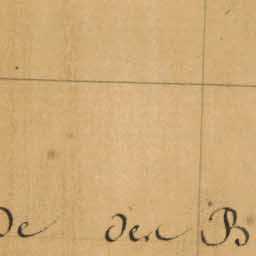 De den B